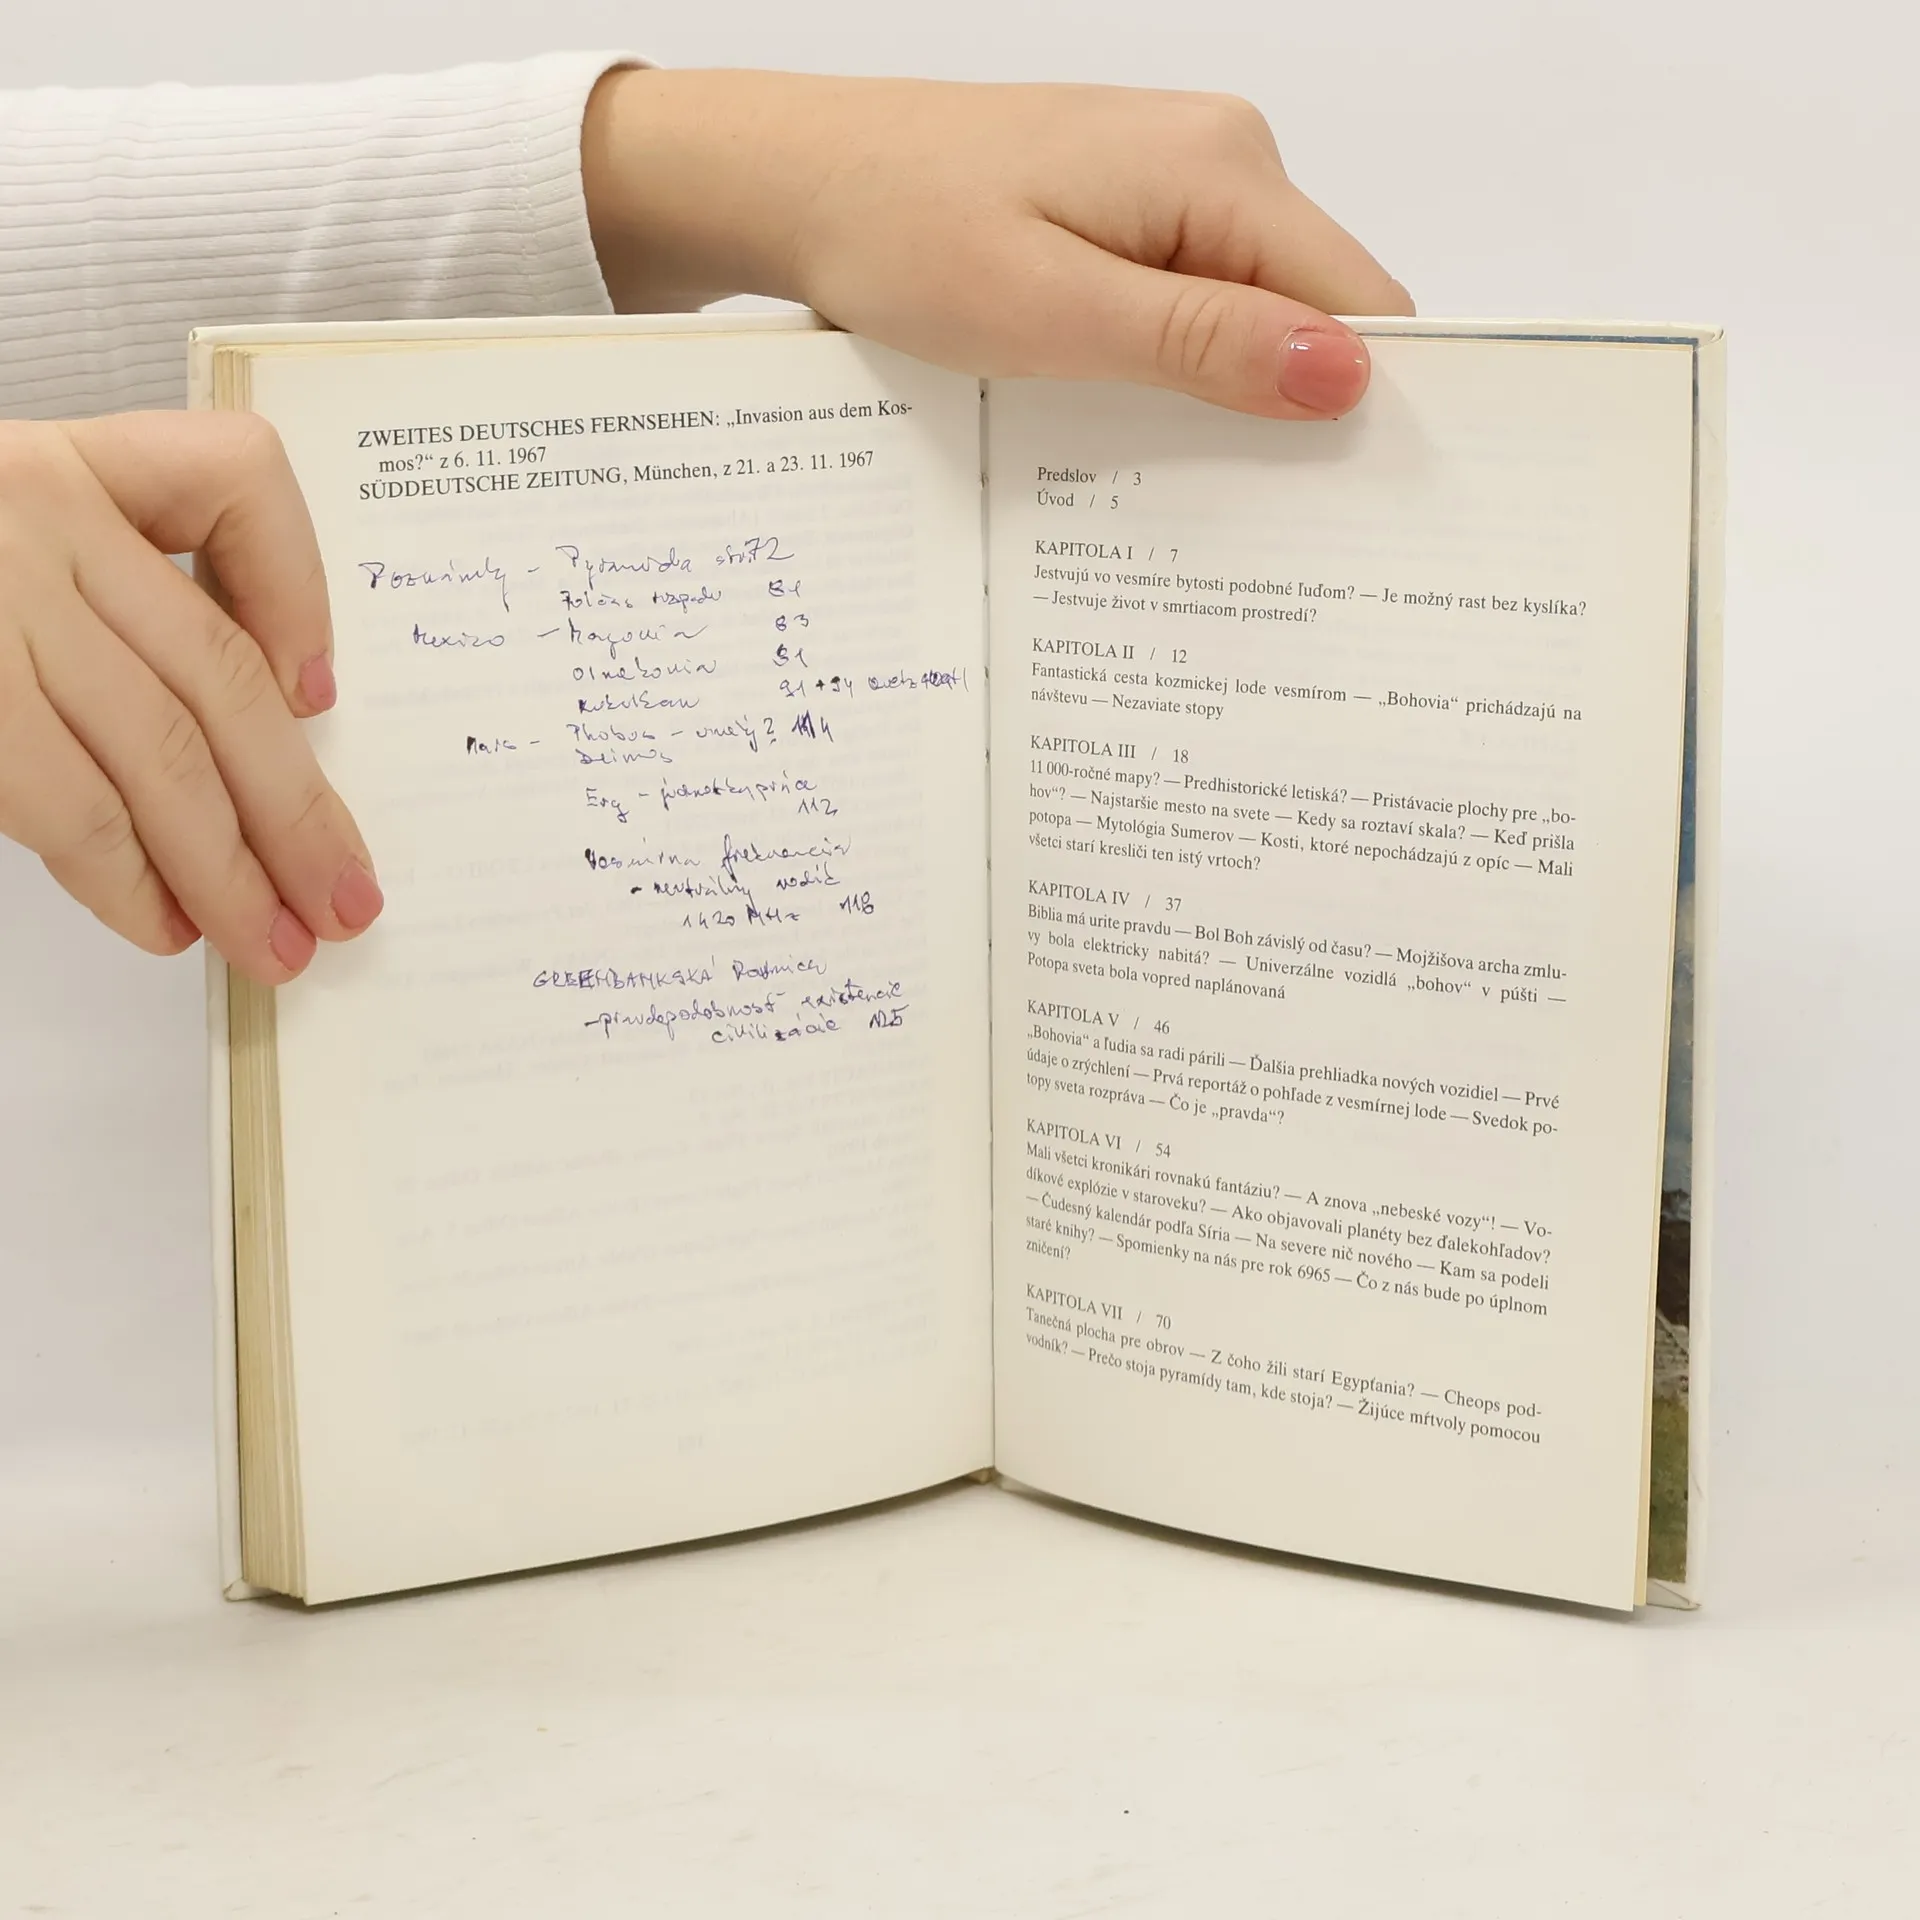 ZWEITES DEUTSCHES FERNSEHEN: „Invasion aus dem Kos-
mos?“ z 6. 11. 1967
SÜDDEUTSCHE ZEITUNG, München, z 21. a 23. 11. 1967
Poznámky - Pyramída str. 72
Polčas rozpadu 81
Mexiko - 83
91
Kukulkan 91 + 94
Mars - Phobos - umelý?
Deimos
Erg - jednotky práce
112
Vesmírna frekvencia
- neutrálny vodík
1420 MHz 118
GREENBANKSKÁ Rovnica
- pravdepodobnosť existencie
civilizácie 125
Predslov / 3
Úvod / 5
KAPITOLA I / 7
Jestvujú vo vesmíre bytosti podobné ľuďom? — Je možný rast bez kyslíka?
— Jestvuje život v smrtiacom prostredí?
KAPITOLA II / 12
Fantastická cesta kozmickej lode vesmírom — „Bohovia“ prichádzajú na
návštevu — Nezaviate stopy
KAPITOLA III / 18
11 000-ročné mapy? — Predhistorické letiská? — Pristávacie plochy pre „bo-
hov“? — Najstaršie mesto na svete — Kedy sa roztaví skala? — Keď prišla
potopa — Mytológia Sumerov — Kosti, ktoré nepochádzajú z opíc — Mali
všetci starí kresliči ten istý vrtoch?
KAPITOLA IV / 37
Biblia má urite pravdu — Bol Boh závislý od času? — Mojžišova archa zmlu-
vy bola elektricky nabitá? — Univerzálne vozidlá „bohov“ v púšti —
Potopa sveta bola vopred naplánovaná
KAPITOLA V / 46
„Bohovia“ a ľudia sa radi párili — Ďalšia prehliadka nových vozidiel — Prvé
údaje o zrýchlení — Prvá reportáž o pohľade z vesmírnej lode — Svedok po-
topy sveta rozpráva — Čo je „pravda“?
KAPITOLA VI / 54
Mali všetci kronikári rovnakú fantáziu? — A znova „nebeské vozy“! — Vo-
díkové explózie v staroveku? — Ako objavovali planéty bez ďalekohľadov?
— Čudesný kalendár podľa Síria — Na severe nič nového — Kam sa podeli
staré knihy? — Spomienky na nás pre rok 6965 — Čo z nás bude po úplnom
zničení?
KAPITOLA VII / 70
Tanečná plocha pre obrov — Z čoho žili starí Egypťania? — Cheops pod-
vodník? — Prečo stoja pyramídy tam, kde stoja? — Žijúce mŕtvoly pomocou